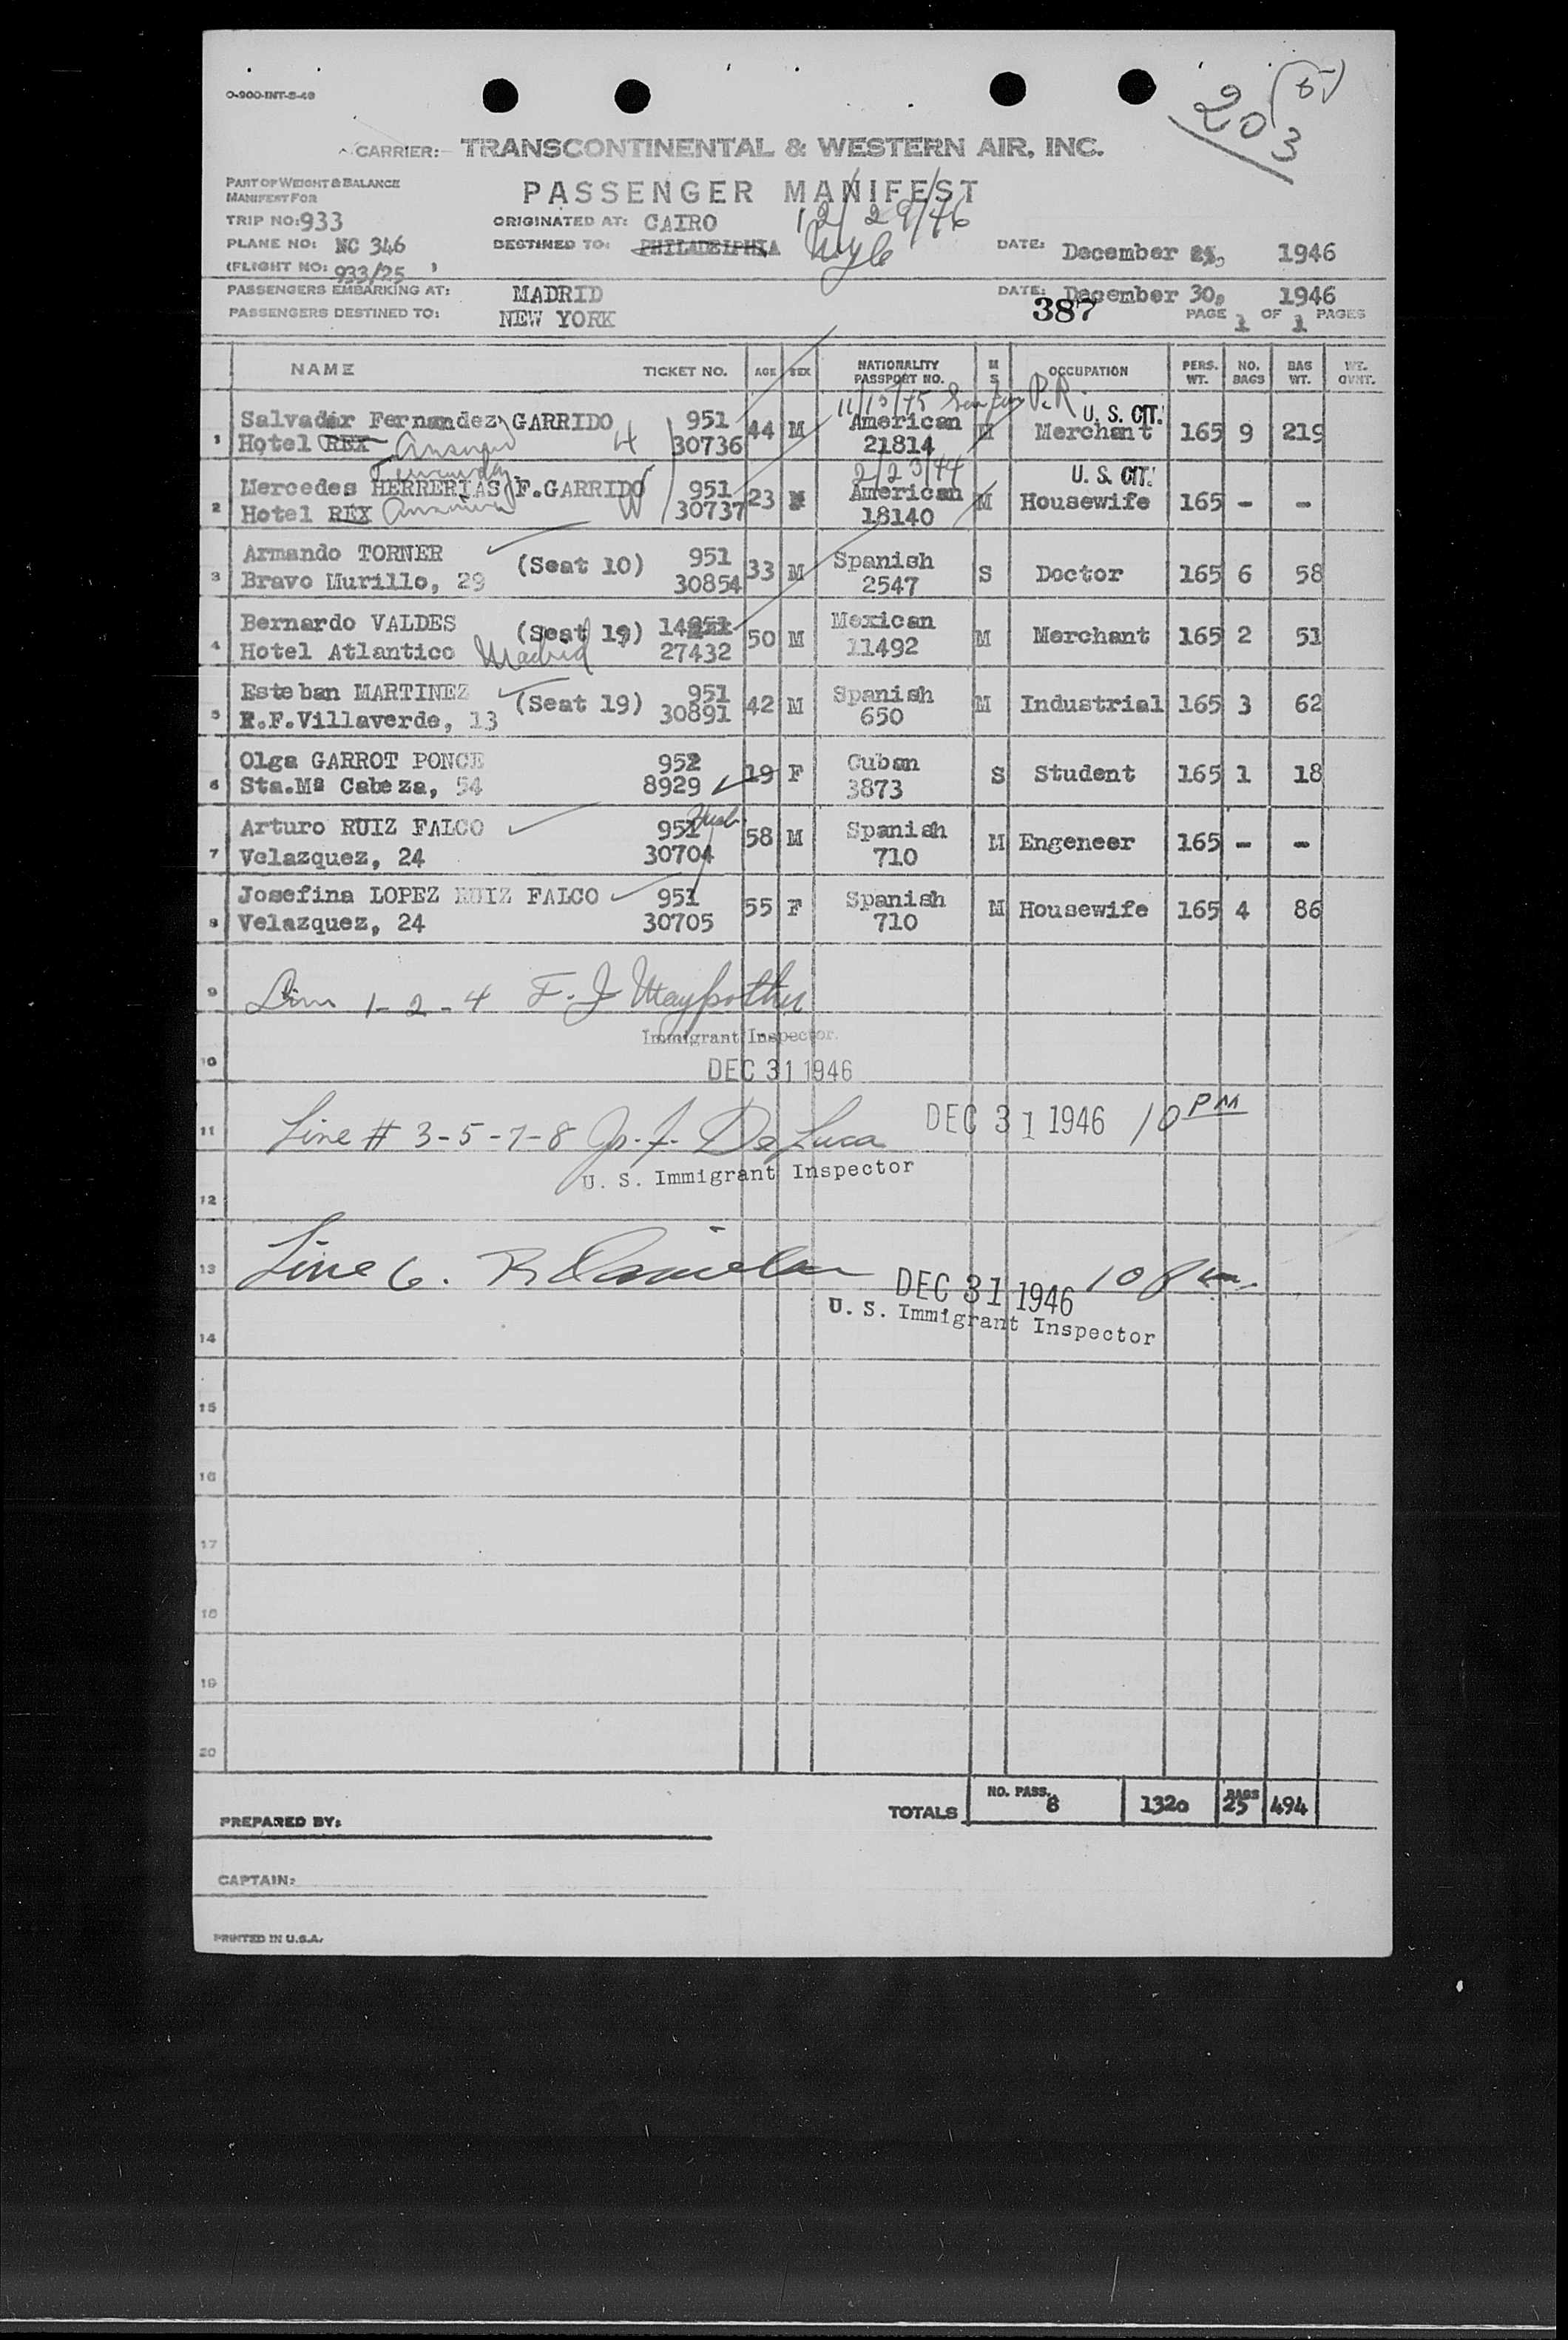 O-900-INT-5-46
(5)
203
CARRIER: TRANSCONTINENTAL & WESTERN AIR, INC.
PART OF WEIGHT & BALANCE
MANIFEST FOR
PASSENGER MANIFEST
12/29/46
TRIP NO: 933 ORIGINATED AT: CAIRO
PLANE NO: NC 346 DESTINED TO: PHILADELPHIA DATE: December 1946
(FLIGHT NO: 933/25 )
PASSENGERS EMBARKING AT: MADRID DATE: December 30, 1946
PASSENGERS DESTINED TO: NEW YORK 387 PAGE 1 OF 1 PAGES
NAME TICKET NO. AGE SEX NATIONALITY PASSPORT NO. M S OCCUPATION PERS. WT. NO. BAGS BAG WT. WT. OVHT.
11/13/45 P.R. U. S. CIT.
1 Salvador Fernandez GARRIDO 951 44 M American M Merchant 165 9 219
Hotel REX H 30736 21814
2/23/44 U. S. CIT.
2 Mercedes HERRERIAS F.GARRIDO 951 23 American M Housewife 165 - -
Hotel REX W 30737 18140
3 Armando TORNER (Seat 10) 951 33 M Spanish S Doctor 165 6 58
Bravo Murillo, 29 30854 2547
4 Bernardo VALDES (Seat 19) 14951 50 M Mexican M Merchant 165 2 51
Hotel Atlantico Madrid 27432 11492
5 Esteban MARTINEZ (Seat 19) 951 42 M Spanish M Industrial 165 3 62
R.F.Villaverde, 13 30891 650
6 Olga GARROT PONCE 952 19 F Cuban S Student 165 1 18
Sta.Mª Cabeza, 54 8929 3873
7 Arturo RUIZ FALCO 951 58 M Spanish M Engeneer 165 - -
Velazquez, 24 30704 710
8 Josefina LOPEZ RUIZ FALCO 951 55 F Spanish M Housewife 165 4 86
Velazquez, 24 30705 710
9 1-2-4 F. J.
Immigrant Inspector.
10 DEC 31 1946
11 Line # 3-5-7-8 De Luca DEC 31 1946 10 PM
U. S. Immigrant Inspector
12
13 Line 6. DEC 31 1946 10 pm.
U. S. Immigrant Inspector
14
15
16
17
18
19
20
TOTALS NO. PASS. 8 1320 BAGS 25 494
PREPARED BY:
CAPTAIN:
PRINTED IN U.S.A.